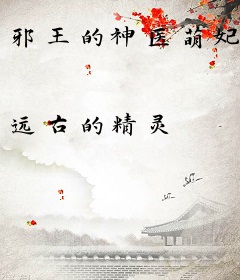 邪王的神医萌妃
远古的精灵